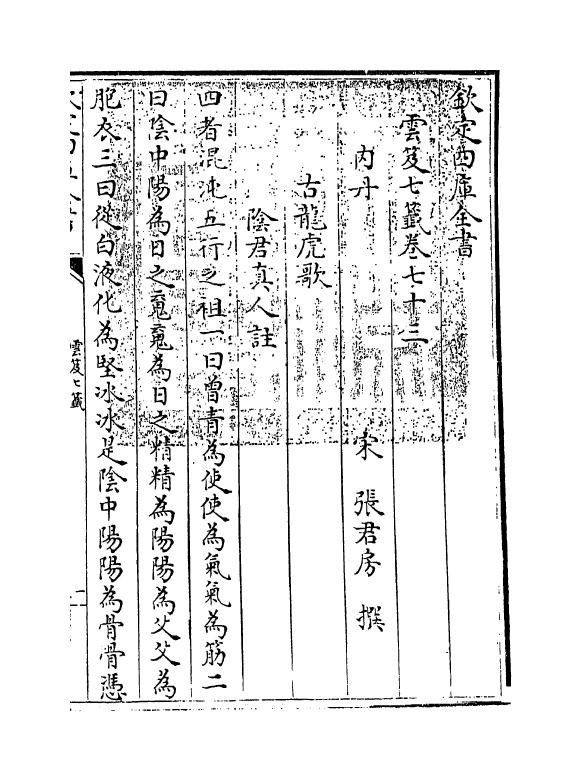 欽定四庫全書
雲笈七籤卷七十三
宋　張君房　撰
内丹
古龍虎歌
陰君真人註
四者混沌五行之祖一曰曾青為使使為氣氣為筋二
曰陰中陽為日之䰟䰟為日之精精為陽陽為父父為
胞衣三曰從白液化為堅冰冰是陰中陽陽為骨骨憑
雲笈七籤